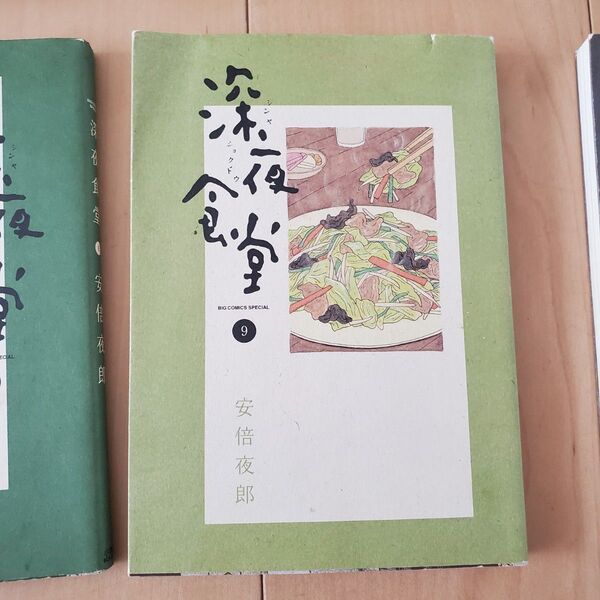 深夜食堂
シンヤ
ショクドウ
BIG COMICS SPECIAL
9
安倍夜郎
深夜食堂
安倍夜郎
夜
堂
シンヤ